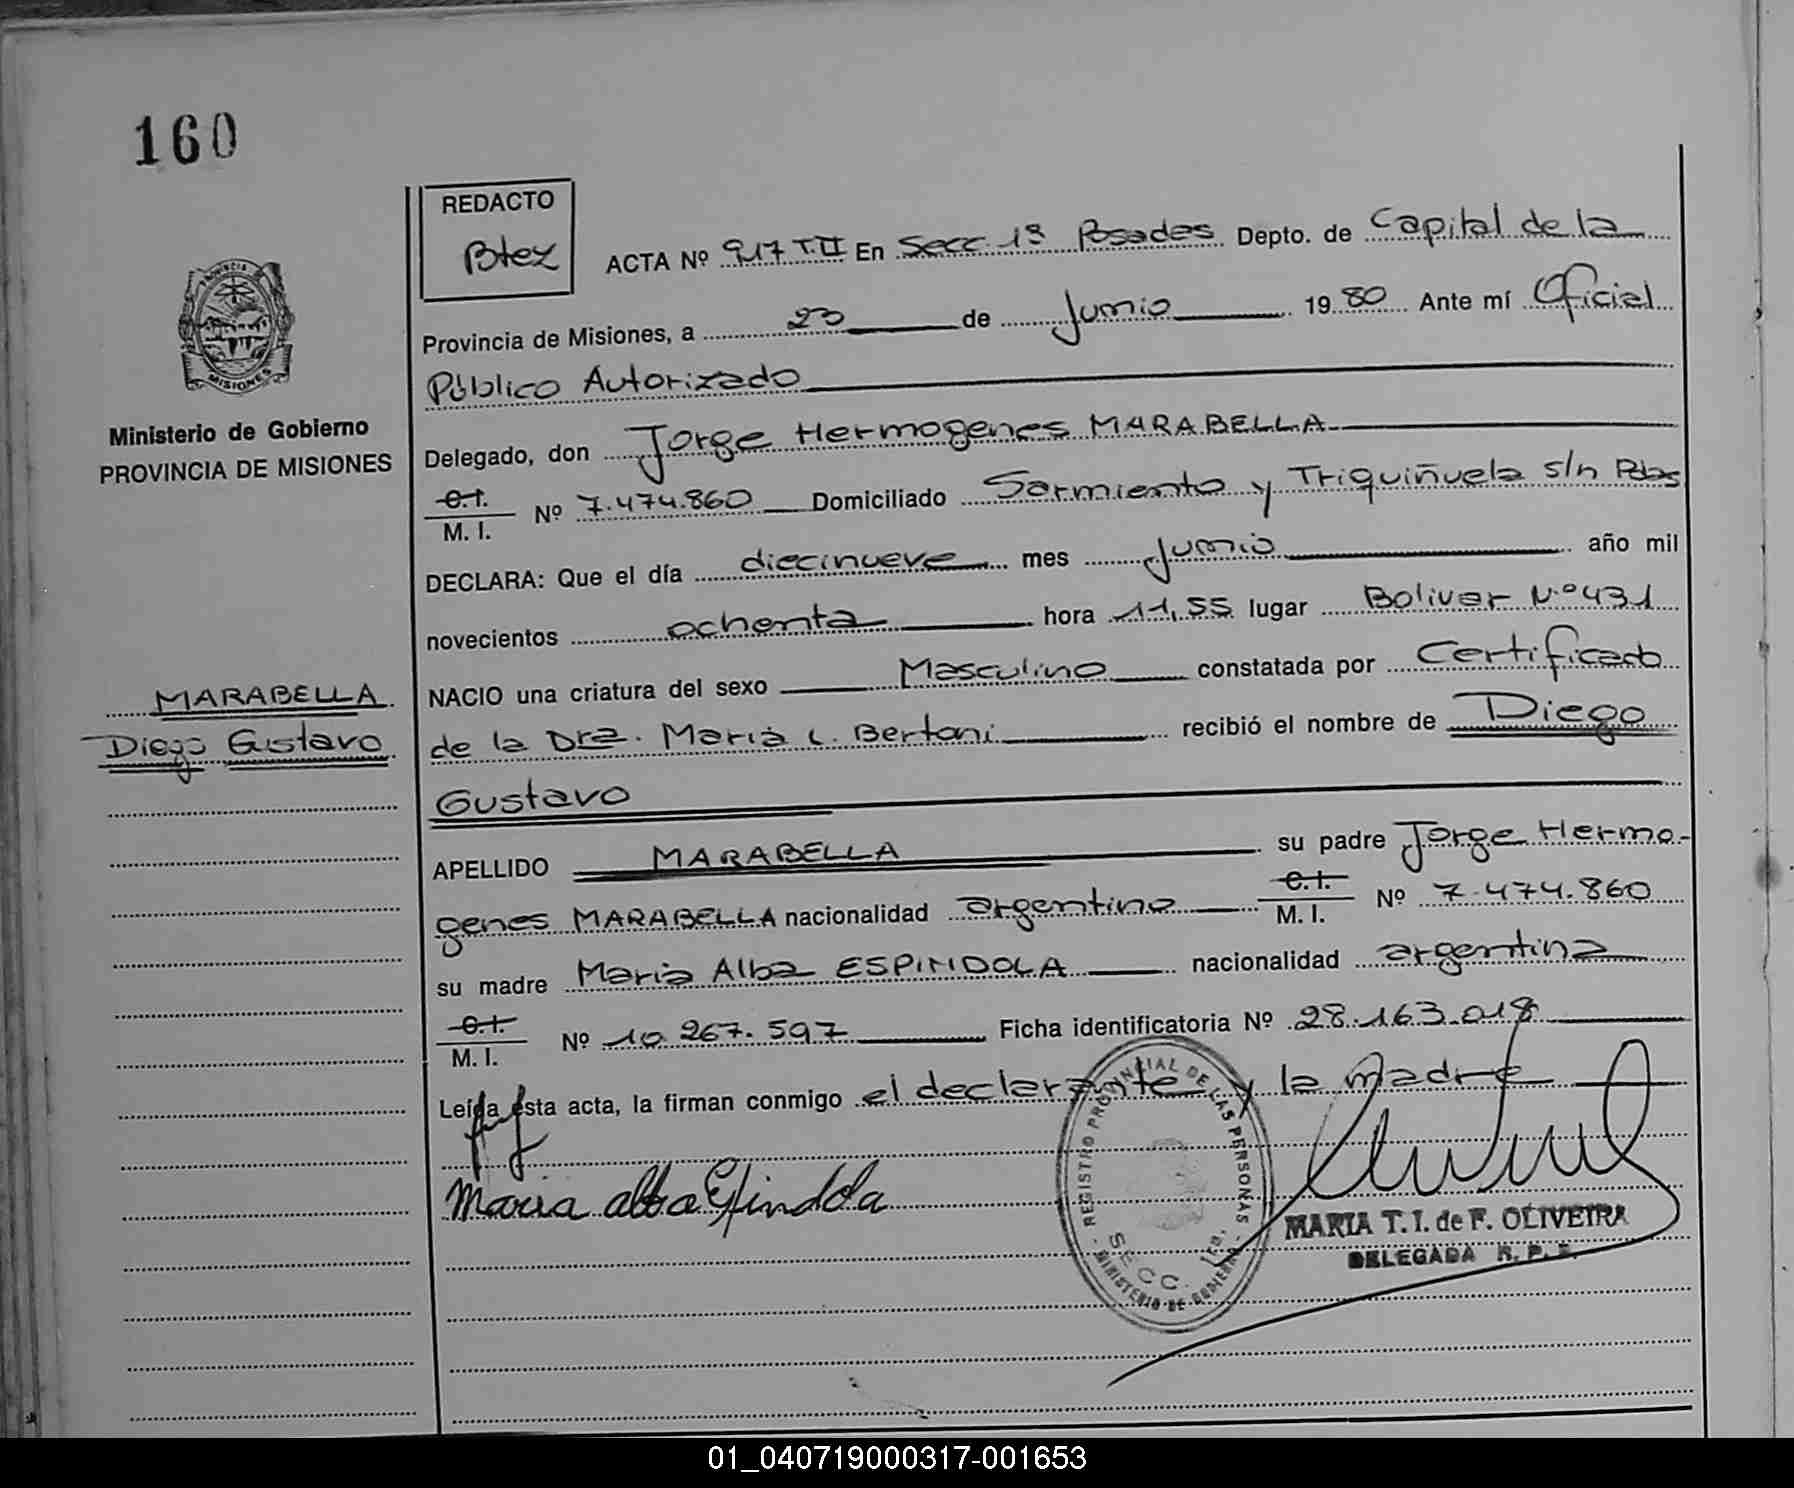 160
REDACTO
Btez
ACTA Nº 917 T II En Secc. 1ª Posadas Depto. de Capital de la
Provincia de Misiones, a 23 de Junio 1980 Ante mí Oficial
Público Autorizado
Delegado, don Jorge Hermogenes MARABELLA
C.I. / M. I. Nº 7.474.860 Domiciliado Sarmiento y Triquiñuela s/n Pdas
DECLARA: Que el día diecinueve mes Junio año mil
novecientos ochenta hora 11,55 lugar Bolivar Nº 431
NACIO una criatura del sexo Masculino constatada por Certificado
de la Dra. Maria L. Bertoni recibió el nombre de Diego
Gustavo
APELLIDO MARABELLA su padre Jorge Hermo-
genes MARABELLA nacionalidad argentina C.I. / M. I. Nº 7.474.860
su madre Maria Alba ESPINDOLA nacionalidad argentina
C.I. / M. I. Nº 10.267.597 Ficha identificatoria Nº 28.163.018
Leída esta acta, la firman conmigo el declarante y la madre
Maria alba Espindola
REGISTRO PROVINCIAL DE LAS PERSONAS
SECC. 1RA.
- MINISTERIO DE GOBIERNO -
MARIA T. I. de F. OLIVEIRA
DELEGADA R. P. P.
PROVINCIA DE
MISIONES
Ministerio de Gobierno
PROVINCIA DE MISIONES
MARABELLA
Diego Gustavo
01_040719000317-001653